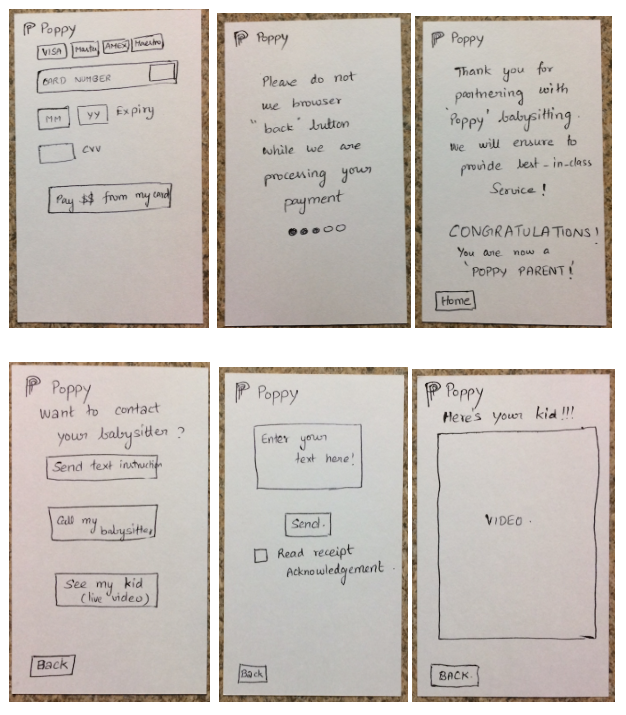 Poppy
VISA Master AMEX Maestro
CARD NUMBER
MM YY Expiry
CVV
Pay $$ from my card
Poppy
Please do not
use browser
"back" button
while we are
processing your
payment
Poppy
Thank you for
partnering with
'Poppy' babysitting.
We will ensure to
provide best-in-class
Service!
CONGRATULATIONS!
You are now a
'POPPY PARENT!'
Home
Poppy
Want to contact
your babysitter?
Send text instruction
Call my
babysitter
See my kid
(live video)
Back
Poppy
Enter your
text here!
Send.
Read receipt
Acknowledgement.
Back
Poppy
Here's your kid!!!
VIDEO.
BACK.